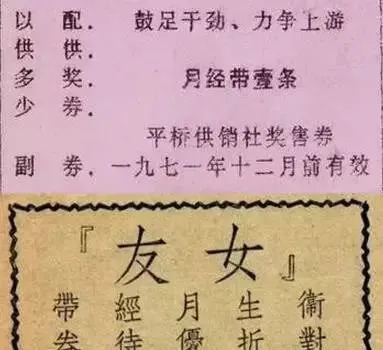 以 配. 鼓足干劲、力争上游
供 供.
多 奖. 月经带壹条
少 券.
平桥供销社奖售券
副 券. 一九七一年十二月前有效
『女友』
衛生月經帶
對折優待券